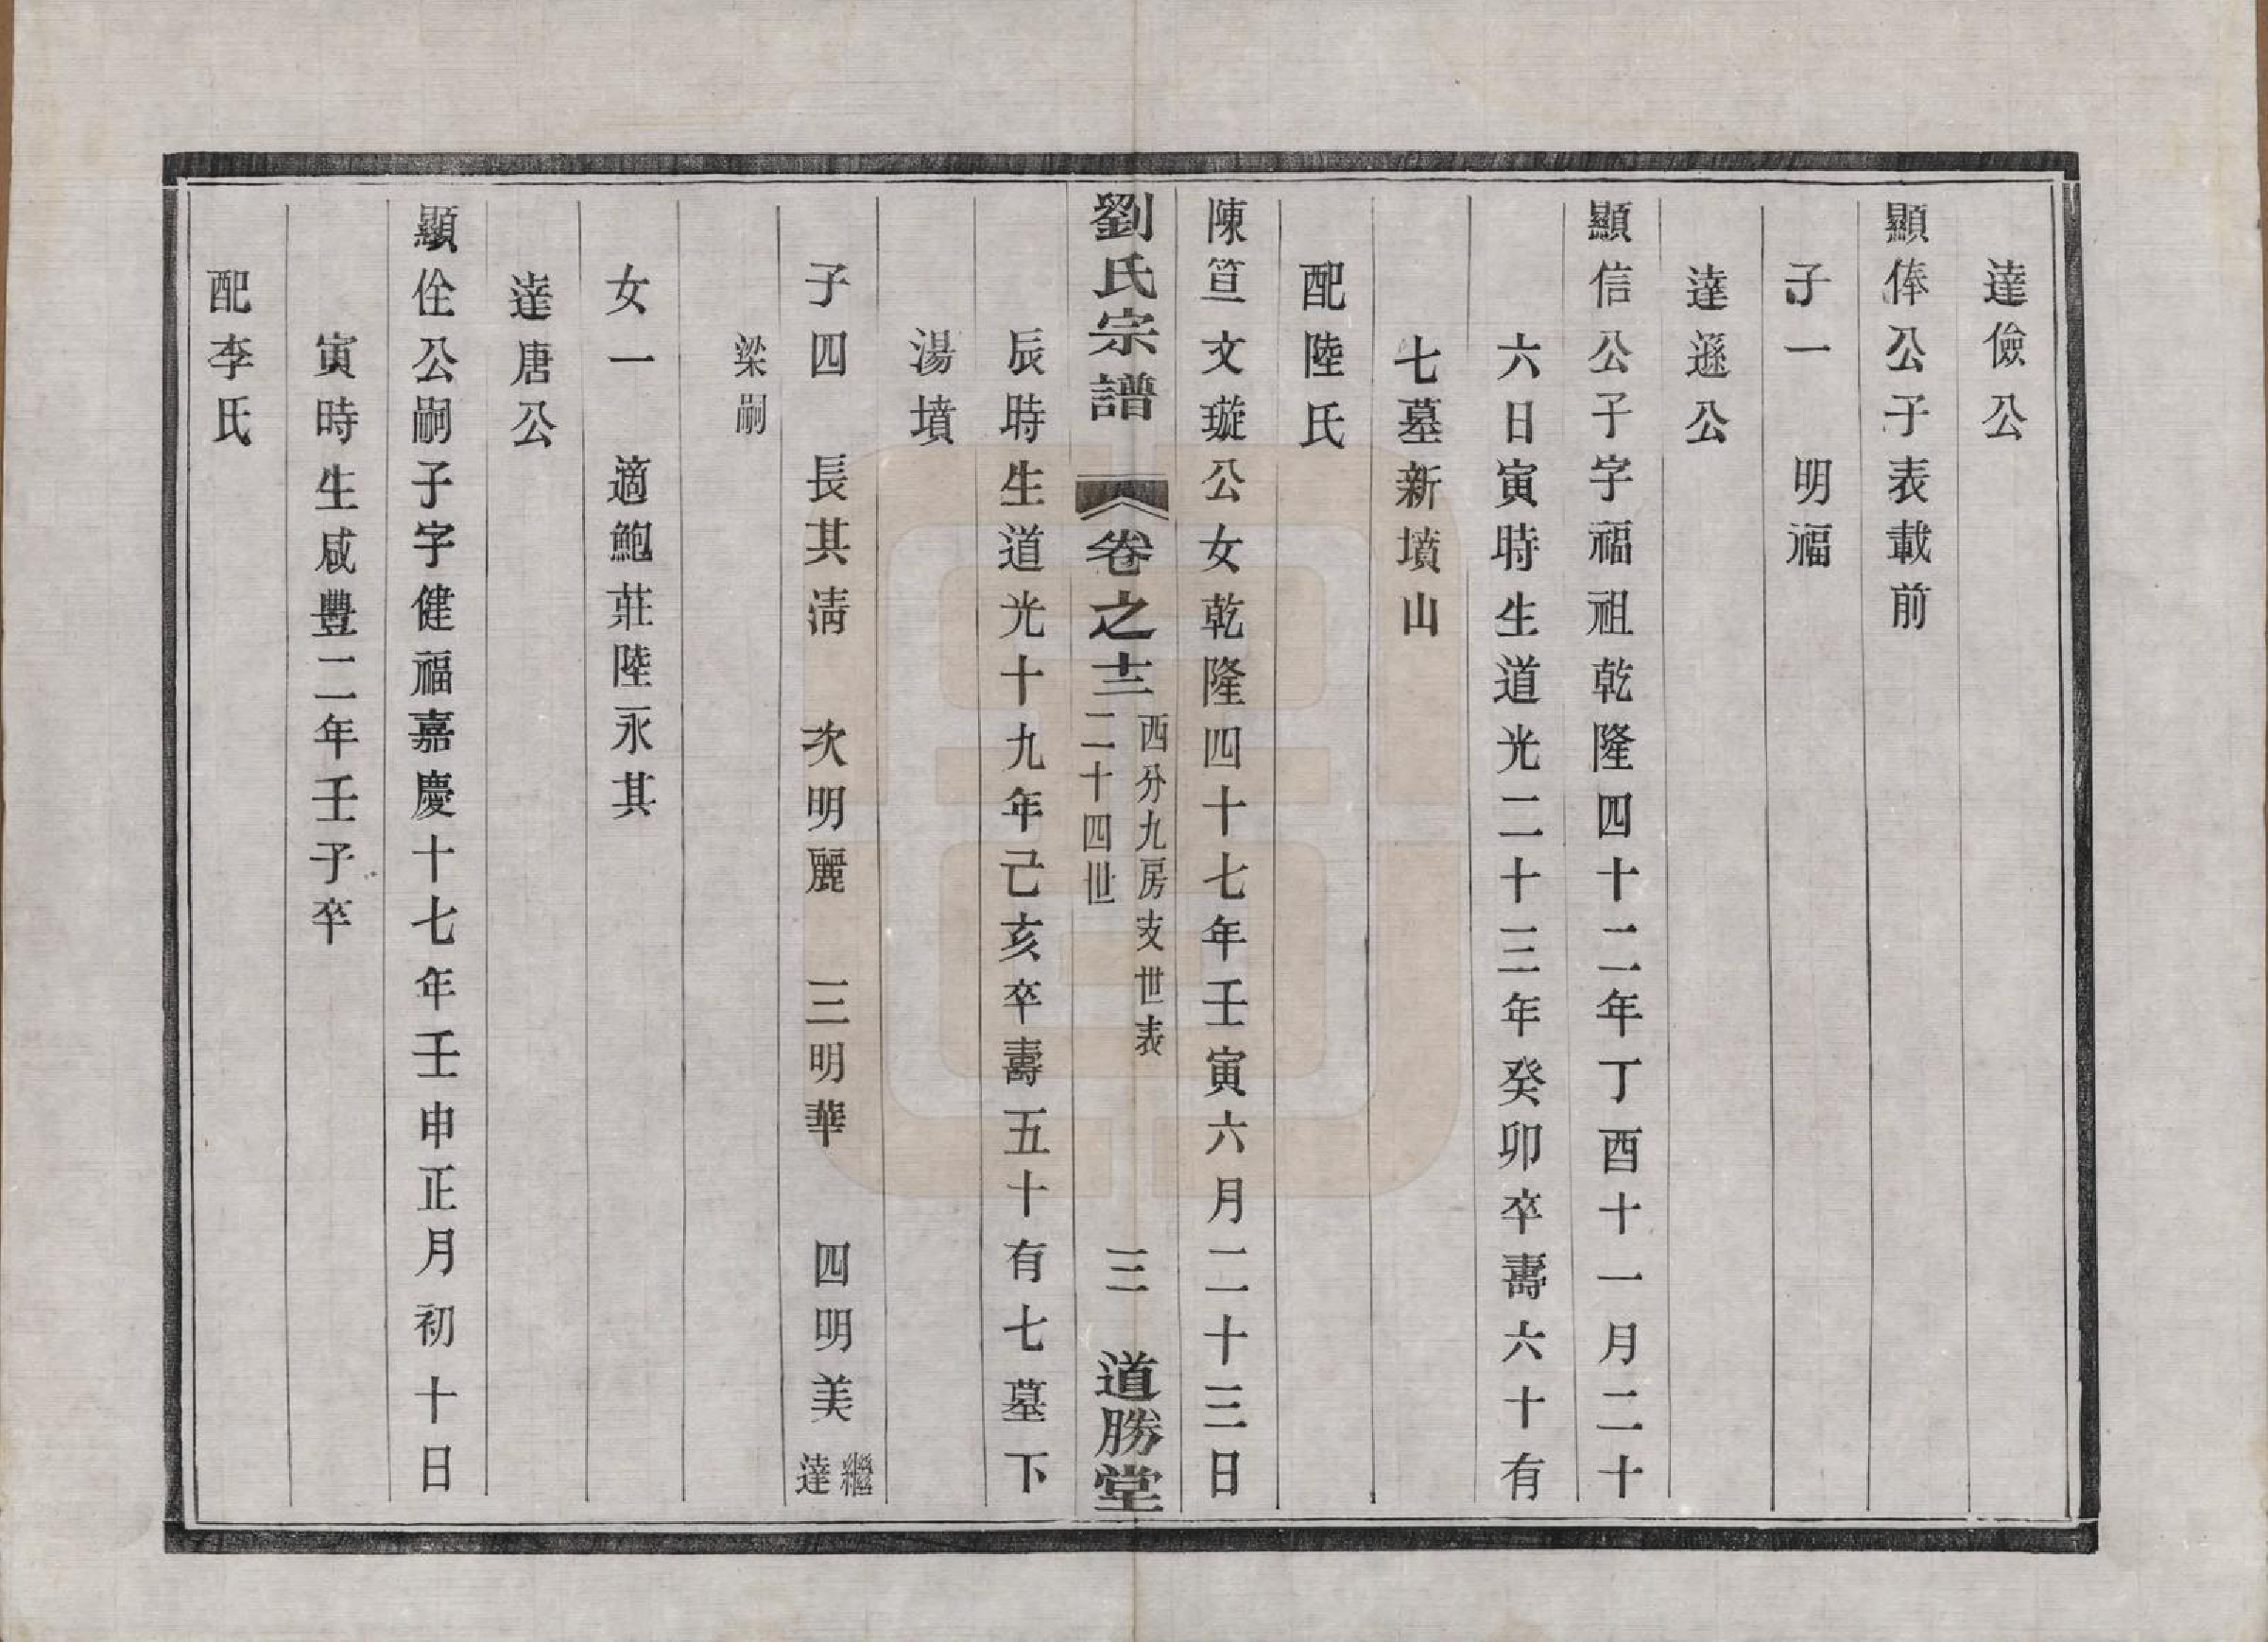 達儉公
顯俸公子表載前
子一　明福
達遜公
顯信公子字福祖乾隆四十二年丁酉十一月二十
六日寅時生道光二十三年癸卯卒壽六十有
七墓新墳山
配陸氏
陳笪文璇公女乾隆四十七年壬寅六月二十三日
劉氏宗譜　卷之十三　西分九房支世表
二十四世　三　道勝堂
辰時生道光十九年己亥卒壽五十有七墓下
湯墳
子四　長其清　次明麗　三明華　四明美　繼達
梁嗣
女一　適鮑莊陸永其
達唐公
顯佺公嗣子字健福嘉慶十七年壬申正月初十日
寅時生咸豐二年壬子卒
配李氏